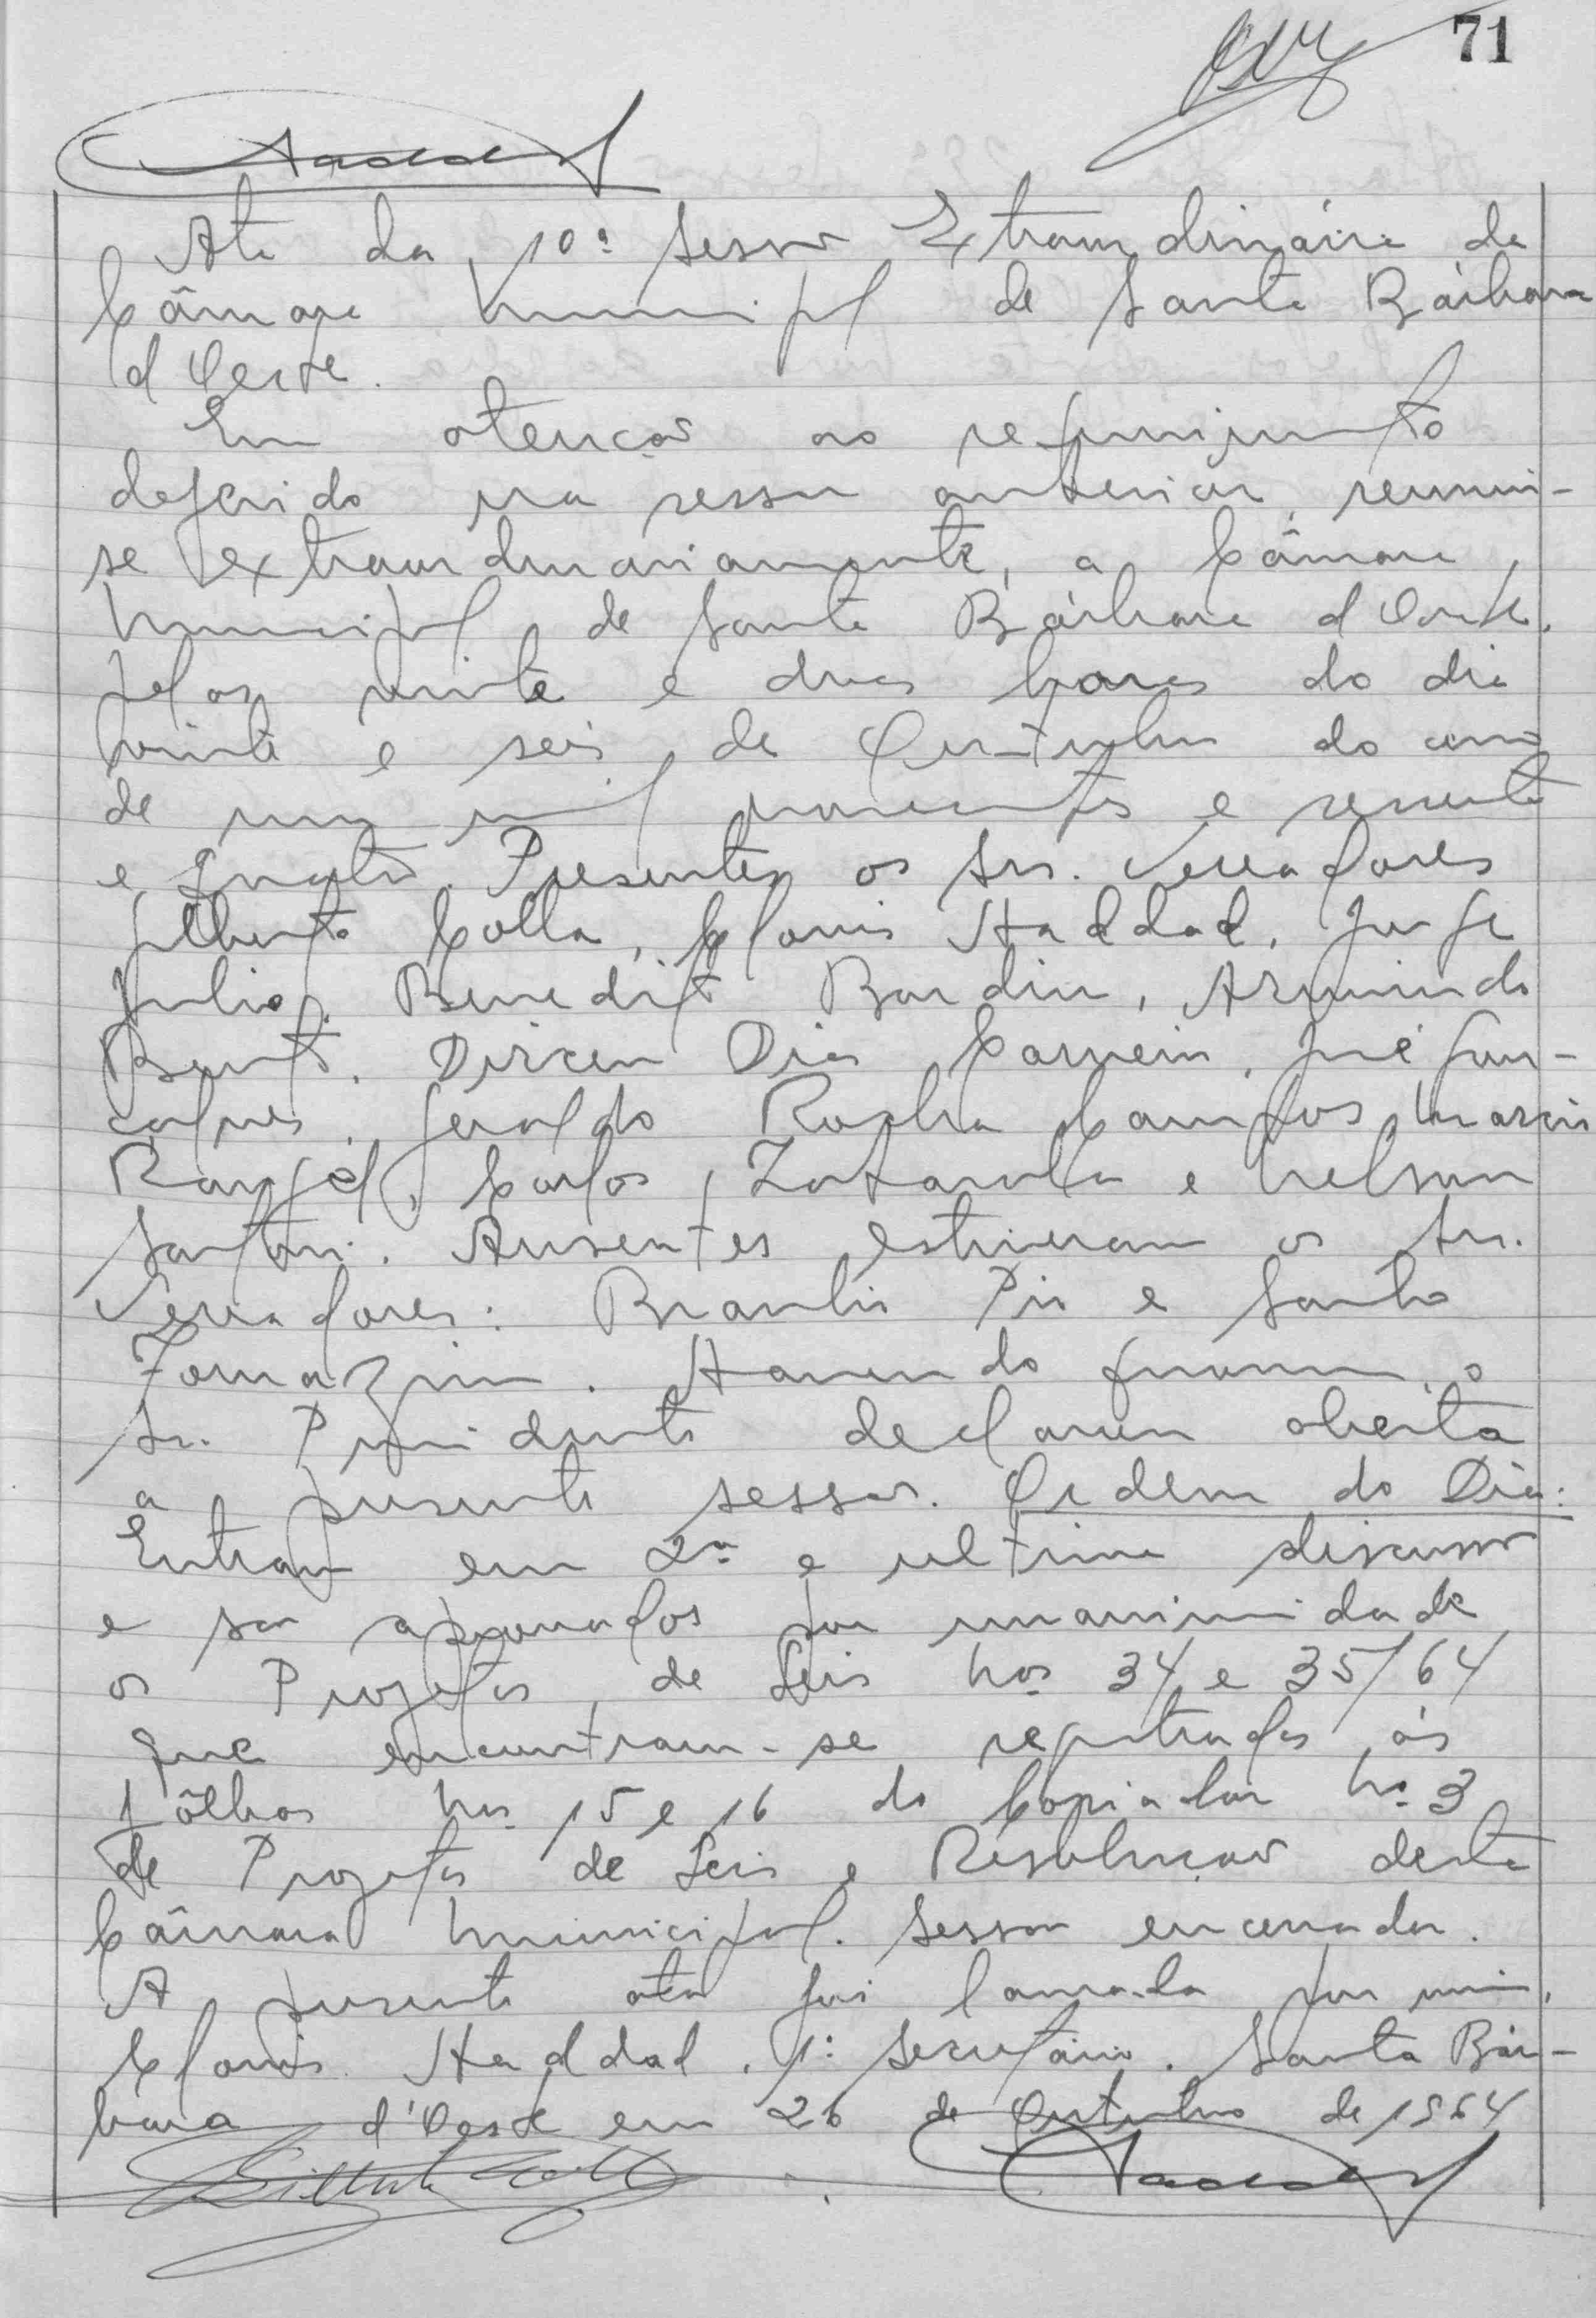 71
Haddad
Ata da 10ª Sessão Extraordinária da
Câmara Municipal de Santa Bárbara
d'Oeste.
Em atenção ao requerimento
deferido na sessão anterior, reuniu-
se extraordinariamente, a Câmara
Municipal de Santa Bárbara d'Oeste,
pelas vinte e duas horas do dia
vinte e seis de Outubro do ano
de um mil novecentos e sessenta
e quatro. Presentes os Srs. Vereadores
Gilberto Colla, Clovis Haddad, Jorge
Julio, Benedito Bardin, Arminndo
Bento, Dirceu Dias Carneiro, José Gon-
çalves, Geraldo Rocha Campos, Marcio
Rangel, Carlos Zotarolla e Nelson
Santoni. Ausentes estiveram os Srs.
Vereadores: Braulio Pio e Santo
Tomazin. Havendo quorum, o
Sr. Presidente declarou aberta
a presente sessão. Ordem do Dia:
Entram em 2ª e ultima discussão
e são aprovados por unanimidade
os Projetos de Leis nos 34 e 35/64
que encontram-se registrados às
fôlhas nos 15 e 16 do Copiador nº 3
de Projetos de Leis e Resolução desta
Câmara Municipal. Sessão encerrada.
A presente ata foi lavrada por mim,
Clovis Haddad, 1º Secretário. Santa Bár-
bara d'Oeste em 26 de Outubro de 1964
Gilberto Colla Haddad